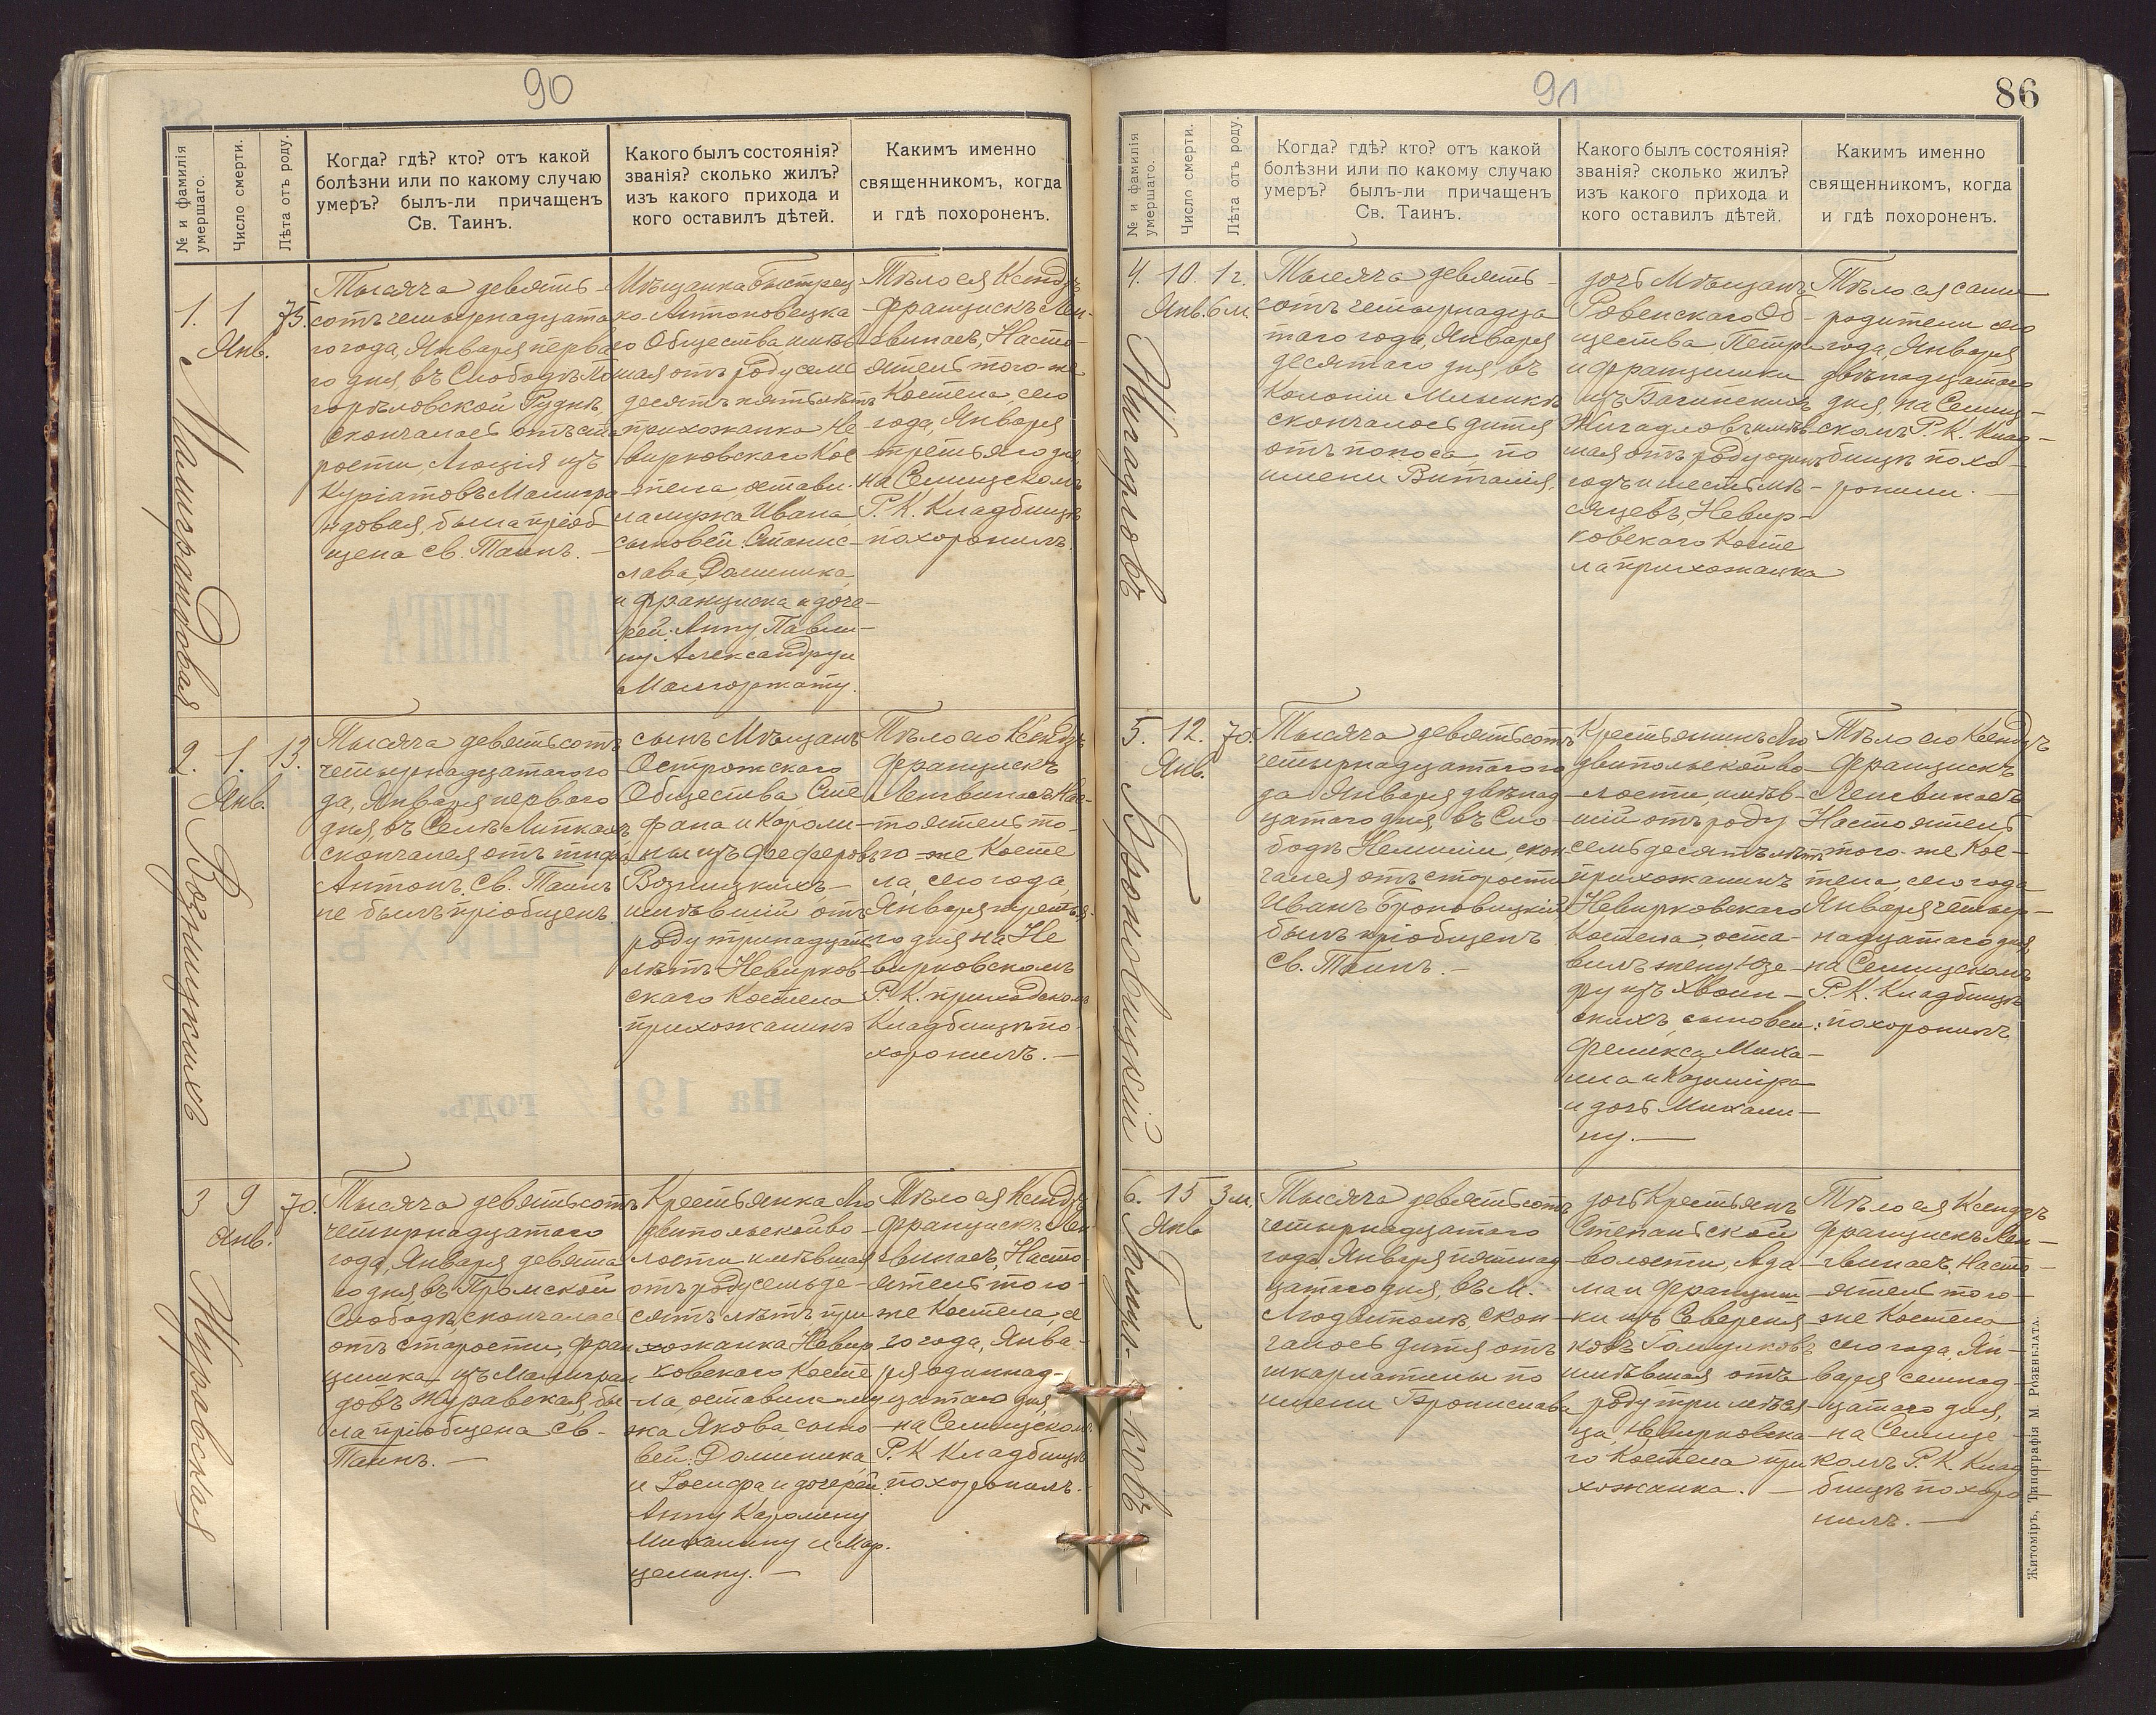 90
№ и фамилія умершаго.
Число смерти.
Лѣта отъ роду.
Когда? гдѣ? кто? отъ какой
болѣзни или по какому случаю
умеръ? былъ-ли причащенъ
Св. Таинъ.
Какого былъ состоянія?
званія? сколько жилъ?
изъ какого прихода и
кого оставилъ дѣтей.
Какимъ именно
священникомъ, когда
и гдѣ похороненъ.
1.
1
Янв.
75.
Тысяча девять-
сотъ четырнадцата
го года, Января перва
го дня, въ Слободѣ
Рудни,
скончалась отъ ста
рости, Люція изъ
Куріатовъ Малигра
ндовая, была пріоб
щена св. Таинъ. —
Мѣщанка Быстрец
ко-Антоновецка
го Общества, имѣв
шая отъ роду семь
десятъ пять лѣтъ
прихожанка Не
вирковскаго Кос
тела, остави-
ла мужа Ивана,
сыновей: Станис-
лава, Доминика,
и Франциска и доче-
рей: Анну, Павли-
ну Александру и
Малгоржату.
Тѣло ея Ксендзъ
Францискъ Лен-
гвинасъ, Насто-
ятель того-же
Костела, сего
года, Января
третьяго дня,
на Селищскомъ
Р. К. Кладбищѣ
похоронилъ.
Малиграндовая
2.
1.
Янв.
13.
Тысяча девятьсотъ
четырнадцатаго го
да, Января перваго
дня, въ Селѣ Липкахъ
скончался отъ тифа
Антонъ, Св. Таинъ
не былъ пріобщенъ.
сынъ Мѣщанъ
Острожскаго
Общества, Сте
фана и Кароли-
ны изъ Фефферовъ
Возницкихъ —
имѣвшій отъ
роду тринадцать
лѣтъ Невирков-
скаго Костела
прихожанинъ
Тѣло его Ксендзъ
Францискъ
Ленгвинасъ, Нас-
тоятель то-
го-же Косте
ла, сего года,
Января третья-
го дня, на Не
вирковскомъ
Р. К. приходскомъ
Кладбищѣ по-
хоронилъ. —
Возницкихъ
3
9
Янв.
70.
Тысяча девятьсотъ
четырнадцатаго
года, Января девята
го дня, въ Громской
Слободѣ, скончалась
отъ старости, Фран
цишка изъ Малигран
довъ Журавская, бы
ла пріобщена св.
Таинъ. —
Крестьянка Лю
двипольской во-
лости имѣвшая
отъ роду семьде-
сятъ лѣтъ, при
хожанка Невир
ковскаго Косте
ла, оставила му
жа Якова, сыно
вей: Доминика,
и Іосифа и дочерей:
Анну Каролину
Михалину и Мар.
целину. —
Тѣло ея Ксендзъ
Францискъ Лен
гвинасъ, Насто
ятель того-
же Костела, се
го года, Янва-
ря одиннад-
цатаго дня,
на Селищскомъ
Р. К. Кладбищѣ
похоронилъ.
Журавская
91
86
№ и фамилія умершаго.
Число смерти.
Лѣта отъ роду.
Когда? гдѣ? кто? отъ какой
болѣзни или по какому случаю
умеръ? былъ-ли причащенъ
Св. Таинъ.
Какого былъ состоянія?
званія? сколько жилъ?
изъ какого прихода и
кого оставилъ дѣтей.
Какимъ именно
священникомъ, когда
и гдѣ похороненъ.
4.
10.
Янв.
1 г.
6 м.
Тысяча девять-
сотъ четырнадца
таго года, Января
десятаго дня, въ
Колоніи Млынкѣ
скончалось дитя
отъ поноса по
имени Виталія.
дочь Мѣщанъ
Ровенскаго Об-
щества, Петра
и Францишки
изъ Багинскихъ
Жигадловъ имѣв
шая отъ роду одинъ
годъ и шесть мѣ-
сяцевъ, Невир-
ковскаго Косте
ла прихожанка
Тѣло ея сами
родители сего
года, Января
двѣнадцатаго
дня, на Селищ-
скомъ Р. К. Клад-
бищѣ похо-
ронили. —
Жигадловъ
5.
12.
Янв.
70.
Тысяча девятьсотъ
четырнадцатаго го
да Января двѣнад-
цатаго дня, въ Сло-
бодѣ Немиліи, скон
чался отъ старости
Иванъ Броновицкій
былъ пріобщенъ
Св. Таинъ. —
Крестьянинъ Лю
двипольской во-
лости, имѣв-
шій отъ роду
семьдесятъ лѣтъ
прихожанинъ
Невирковскаго
Костела, оста-
вилъ жену Юзе-
фу изъ Хвоин-
скихъ, сыновей:
Феликса, Миха-
ила и Казимира
и дочь Михали-
ну. —
Тѣло его Ксендзъ
Францискъ
Ленгвинасъ
Настоятель
того-же Кос-
тела, сего года
Января четыр-
надцатаго дня,
на Селищскомъ
Р. К. Кладбищѣ
похоронилъ
Броновицкій
6.
15
Янв
3 м.
Тысяча девятьсотъ
четырнадцатаго
года, Января пятнад
цатаго дня, въ М.
Людвиполѣ скон-
чалось дитя отъ
шкарлатины по
имени Бронислава
дочь Крестьянъ
Степаньской
волости, Ада-
ма и Францишк
ки изъ Севериня
ковъ
имѣвшая отъ
роду три мѣся-
ца, Невирковска-
го Костела при
хожанка. —
Тѣло ея Ксендзъ
Францискъ Лен-
гвинасъ, Насто-
ятель того-
же Костела
сего года, Ян-
варя семнад-
цатаго дня,
на Селищс-
комъ Р. К. Клад
бищѣ похоро
нилъ. —
Житоміръ, Типографія М. Розенблата.